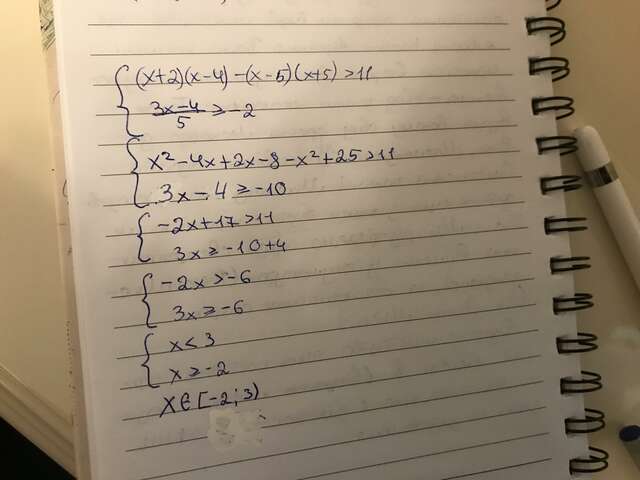 (x+2)(x-4)-(x-5)(x+5)>11
3x-4/5 ≥ -2
x²-4x+2x-8-x²+25>11
3x-4 ≥ -10
-2x+17>11
3x ≥ -10+4
-2x>-6
3x ≥ -6
x<3
x ≥ -2
x∈[-2;3)